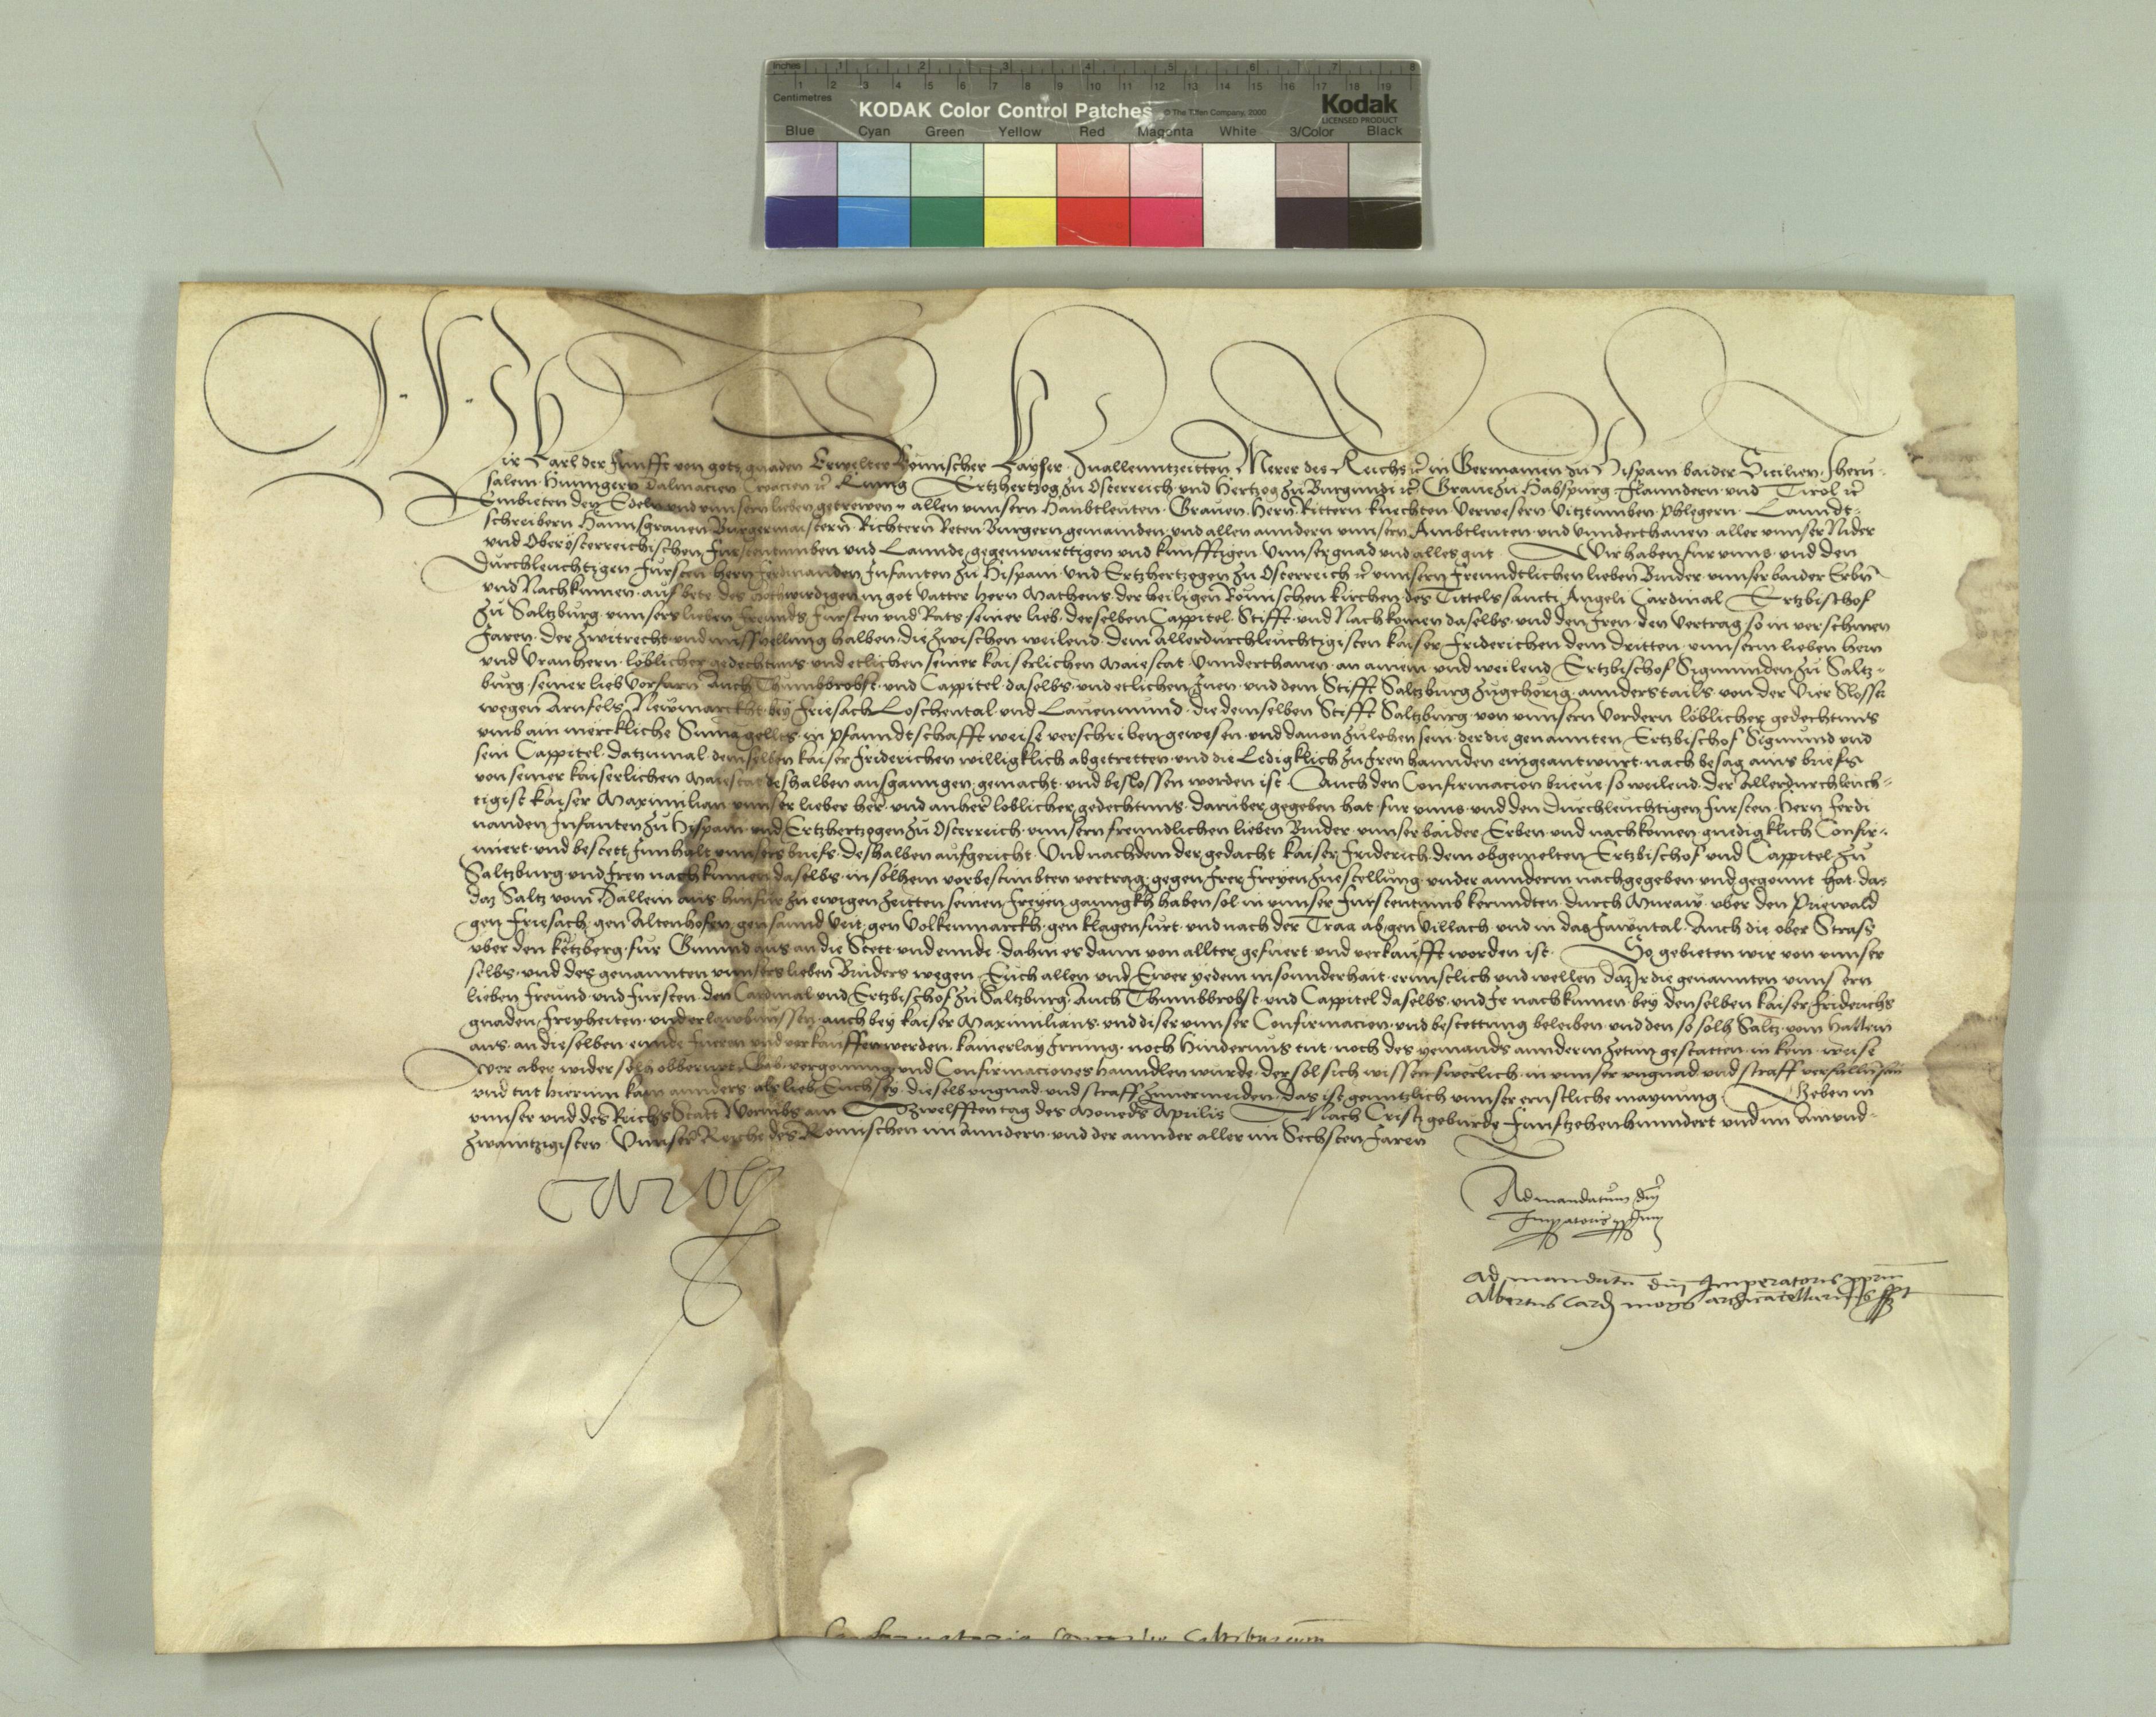 Inches 1 2 3 4 5 6 7 8
1 2 3 4 5 6 7 8 9 10 11 12 13 14 15 16 17 18 19
Centimetres
KODAK Color Control Patches © The Tiffen Company, 2000 Kodak
LICENSED PRODUCT
Blue Cyan Green Yellow Red Magenta White 3/Color Black
Wir Karl der Funfft von gots gnaden Erwelter Römischer Kayser Zuallenntzeitten Merer des Reichs ꝛc̄ in Germanien zu Hispani baider Sicilien Iheru-
salem Hunngern Dalmacien Croacien ꝛc̄ Kunig Ertzhertzog zu Osterreich und Hertzog zu Burgundi ꝛc̄ Graue zu Habspurg Flanndern und Tirol ꝛc̄
Embieten den Edeln und unnsern lieben getrewen N allen unnsern Haubtleuten Grauen Hern Rittern knechten Verwesern Vitztumben Phlegern Lanndt-
schreibern Hannsgrauen Burgermaistern Richtern Reten Burgern gemainden und allen anndern unnsern Ambtleuten und Unnderthanen aller unnser Nider
und Oberösterreichischen Furstentumben und Lannde gegenwurttigen und kunfftigen Unnser gnad und alles gut Wir haben fur unns und den
Durchleuchtigen Fursten hern Ferdinanden Infanten zu Hispani und Ertzhertzogen zu Osterreich ꝛc̄ unnsern freundtlichen lieben Bruder unnser baider Erbn
und Nachkumen auf bete des Hochwirdigen in got Vatter hern Matheus der heiligen Römischen kirchen des Tittels sancti Angeli Cardinal Ertzbischof
zu Saltzburg unnsers lieben Freunds Fursten und Rats seiner lieb derselben Cappitel Stifft und Nachkomen daselbs und den Iren den Vertrag so in verschinen
Jaren der Zwitrecht und missvellung halben die zwischen weilend dem allerdurchleuchtigisten kaiser Friderichen dem dritten unnserm lieben hern
und Uranhern löblicher gedechtnus und etlichen seiner kaiserlichen Maiestat Unnderthanen an ainem und weilend Ertzbischof Sigmunden zu Saltz-
burg seiner lieb Vorfarn Auch Thumbbrobst und Cappitel daselbs und etlichen Iren und dem Stifft Saltzburg zugehörig annderstails von der Vier Slosse
wegen Arnfels Newmarckht bey Friesach Loschental und Lauenmund die demselben Stifft Saltzburg von unnsern Vordern löblicher gedechtnus
umb ain merckliche Suma gellts in Pfanndtschafft weise verschriben gewesen und dauon zulehen sein der die genannten Ertzbischof Sigmund und
sein Cappitel datzumal demselben kaiser Friderichen willigklich abgetretten und die Ledigklich zu Iren hannden eingeantwurt nach besag ains briefs
von seiner kaiserlichen Maiestat deshalben ausganngen gemacht und beslossen worden ist Auch den Confirmacion brieue so weilend der Allerdurchleuch-
tigist kaiser Maximilian unnser lieber her und anher löblicher gedechtnus daruber gegeben hat fur unns und den Durchleuchtigen Fursten Hern Ferdi
nanden Infanten zu Hispani und Ertzhertzogen zu Osterreich unnsern freundlichen lieben Bruder unnser baider Erben und nachkomen gnedigklich Confir-
miert und bestett Innhalt unnsers briefs deshalben aufgericht Und nachdem der gedacht kaiser Friderich dem obgemelten Ertzbischof und Cappitel zu
Saltzburg und Iren nachkumen daselbs in solhem vorbestimbten vertrag gegen Irer Freyen zuestellung under annderm nachgegeben und gegonnt hat das
daz Saltz vom Hällein aus hinfur zu ewigen zeitten seinen freyen ganngkh haben sol in unnser Furstentumb kernndten durch Muraw uber den Priewald
gen Friesach gen Altenhofen gen sannd Veit gen Volkenmarckh gen klagenfurt und nach der Traa ab gen Villach und in das Jawntal Auch die ober Strass
uber den ketzberg fur Gmund aus an die Stett und ennde dahin es dann von allter gefuert und verkaufft worden ist So gebieten wir von unnser
selbs und des genannten unnsers lieben Bruders wegen Euch allen und Ewer yedem in sonnderhait ernnstlich und wellen daz Ir die genannten unnsern
lieben Freund und Fursten den Cardinal und Ertzbischof zu Saltzburg Auch Thumbbrobst und Cappitel daselbs und Ir nachkumen bey denselben kaiser Friderichs
gnaden Freyheiten und erlawbnussen auch bey kaiser Maximilians und diser unnser Confirmacion und bestettung beleiben und den so solh Saltz vom Hallein
aus an dieselben ennde fueren und verkauffen werden kainerlay Irrung noch hindernus tut noch des yemands annderm zetun gestatten in kein weise
Wer aber wider solh obberurt Gab vergonnung und Confirmaciones hanndlen wurde der sol sich wissen swerlich in unnser ungnad und straff verfallen sein
und tut hierinn kain annders als lieb Euch sey dieselb ungnad und straff zuuermeiden das ist genntzlich unnser ernstliche maynung Geben in
unnser und des Reichs Statt Wormbs am Zwelfften tag des Moneds Aprilis Nach Cristi geburde Funftzehenhundert und im Ainund-
zwaintzigisten Unnser Reiche des Römischen im anndern und der annder aller im Sechsten Jaren
Carolus
Ad mandatum dn̄i
Imperatoris pp̄rium
Ad mandatū dn̄i Imperatoris pprium
Albertus Card mogs archicācellarius sspt